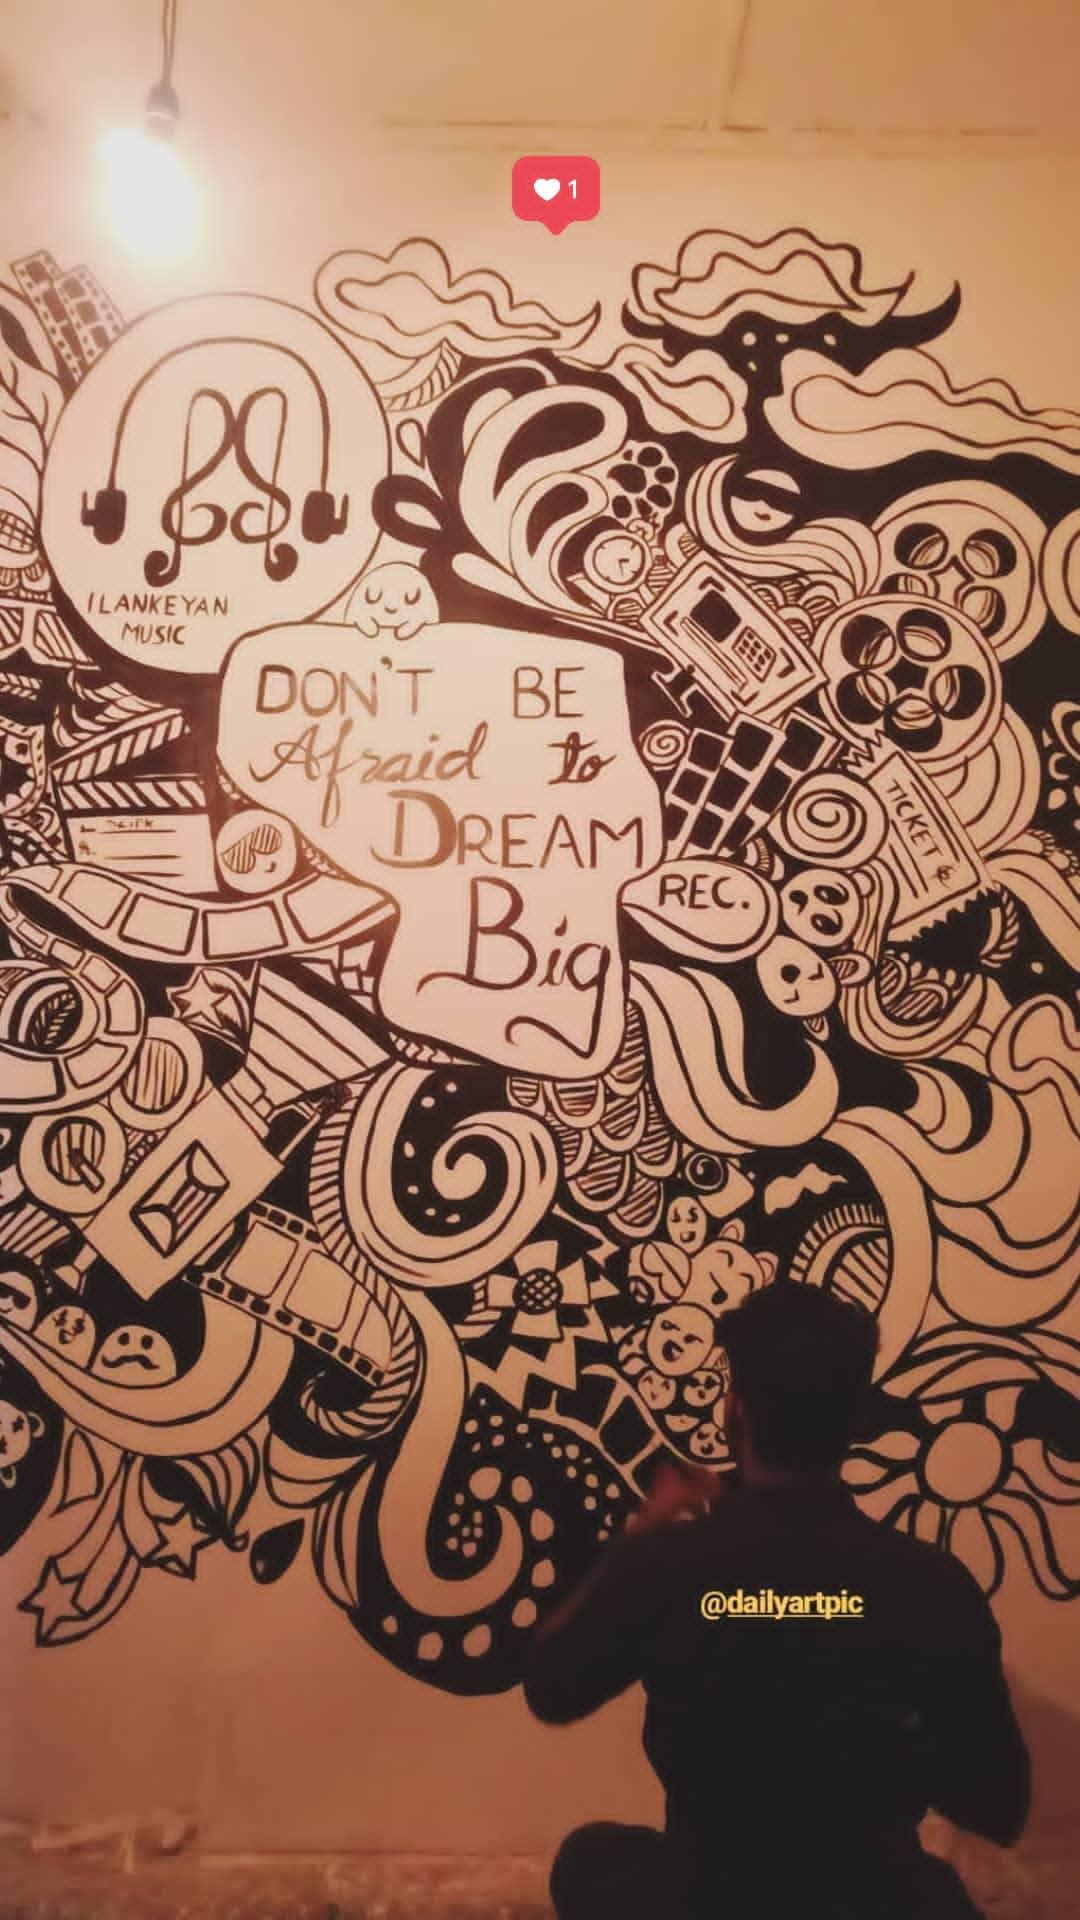 1
ILANKEYAN
MUSIC
DON'T BE
Afraid to
DREAM
Big
TICKET
REC.
@dailyartpic